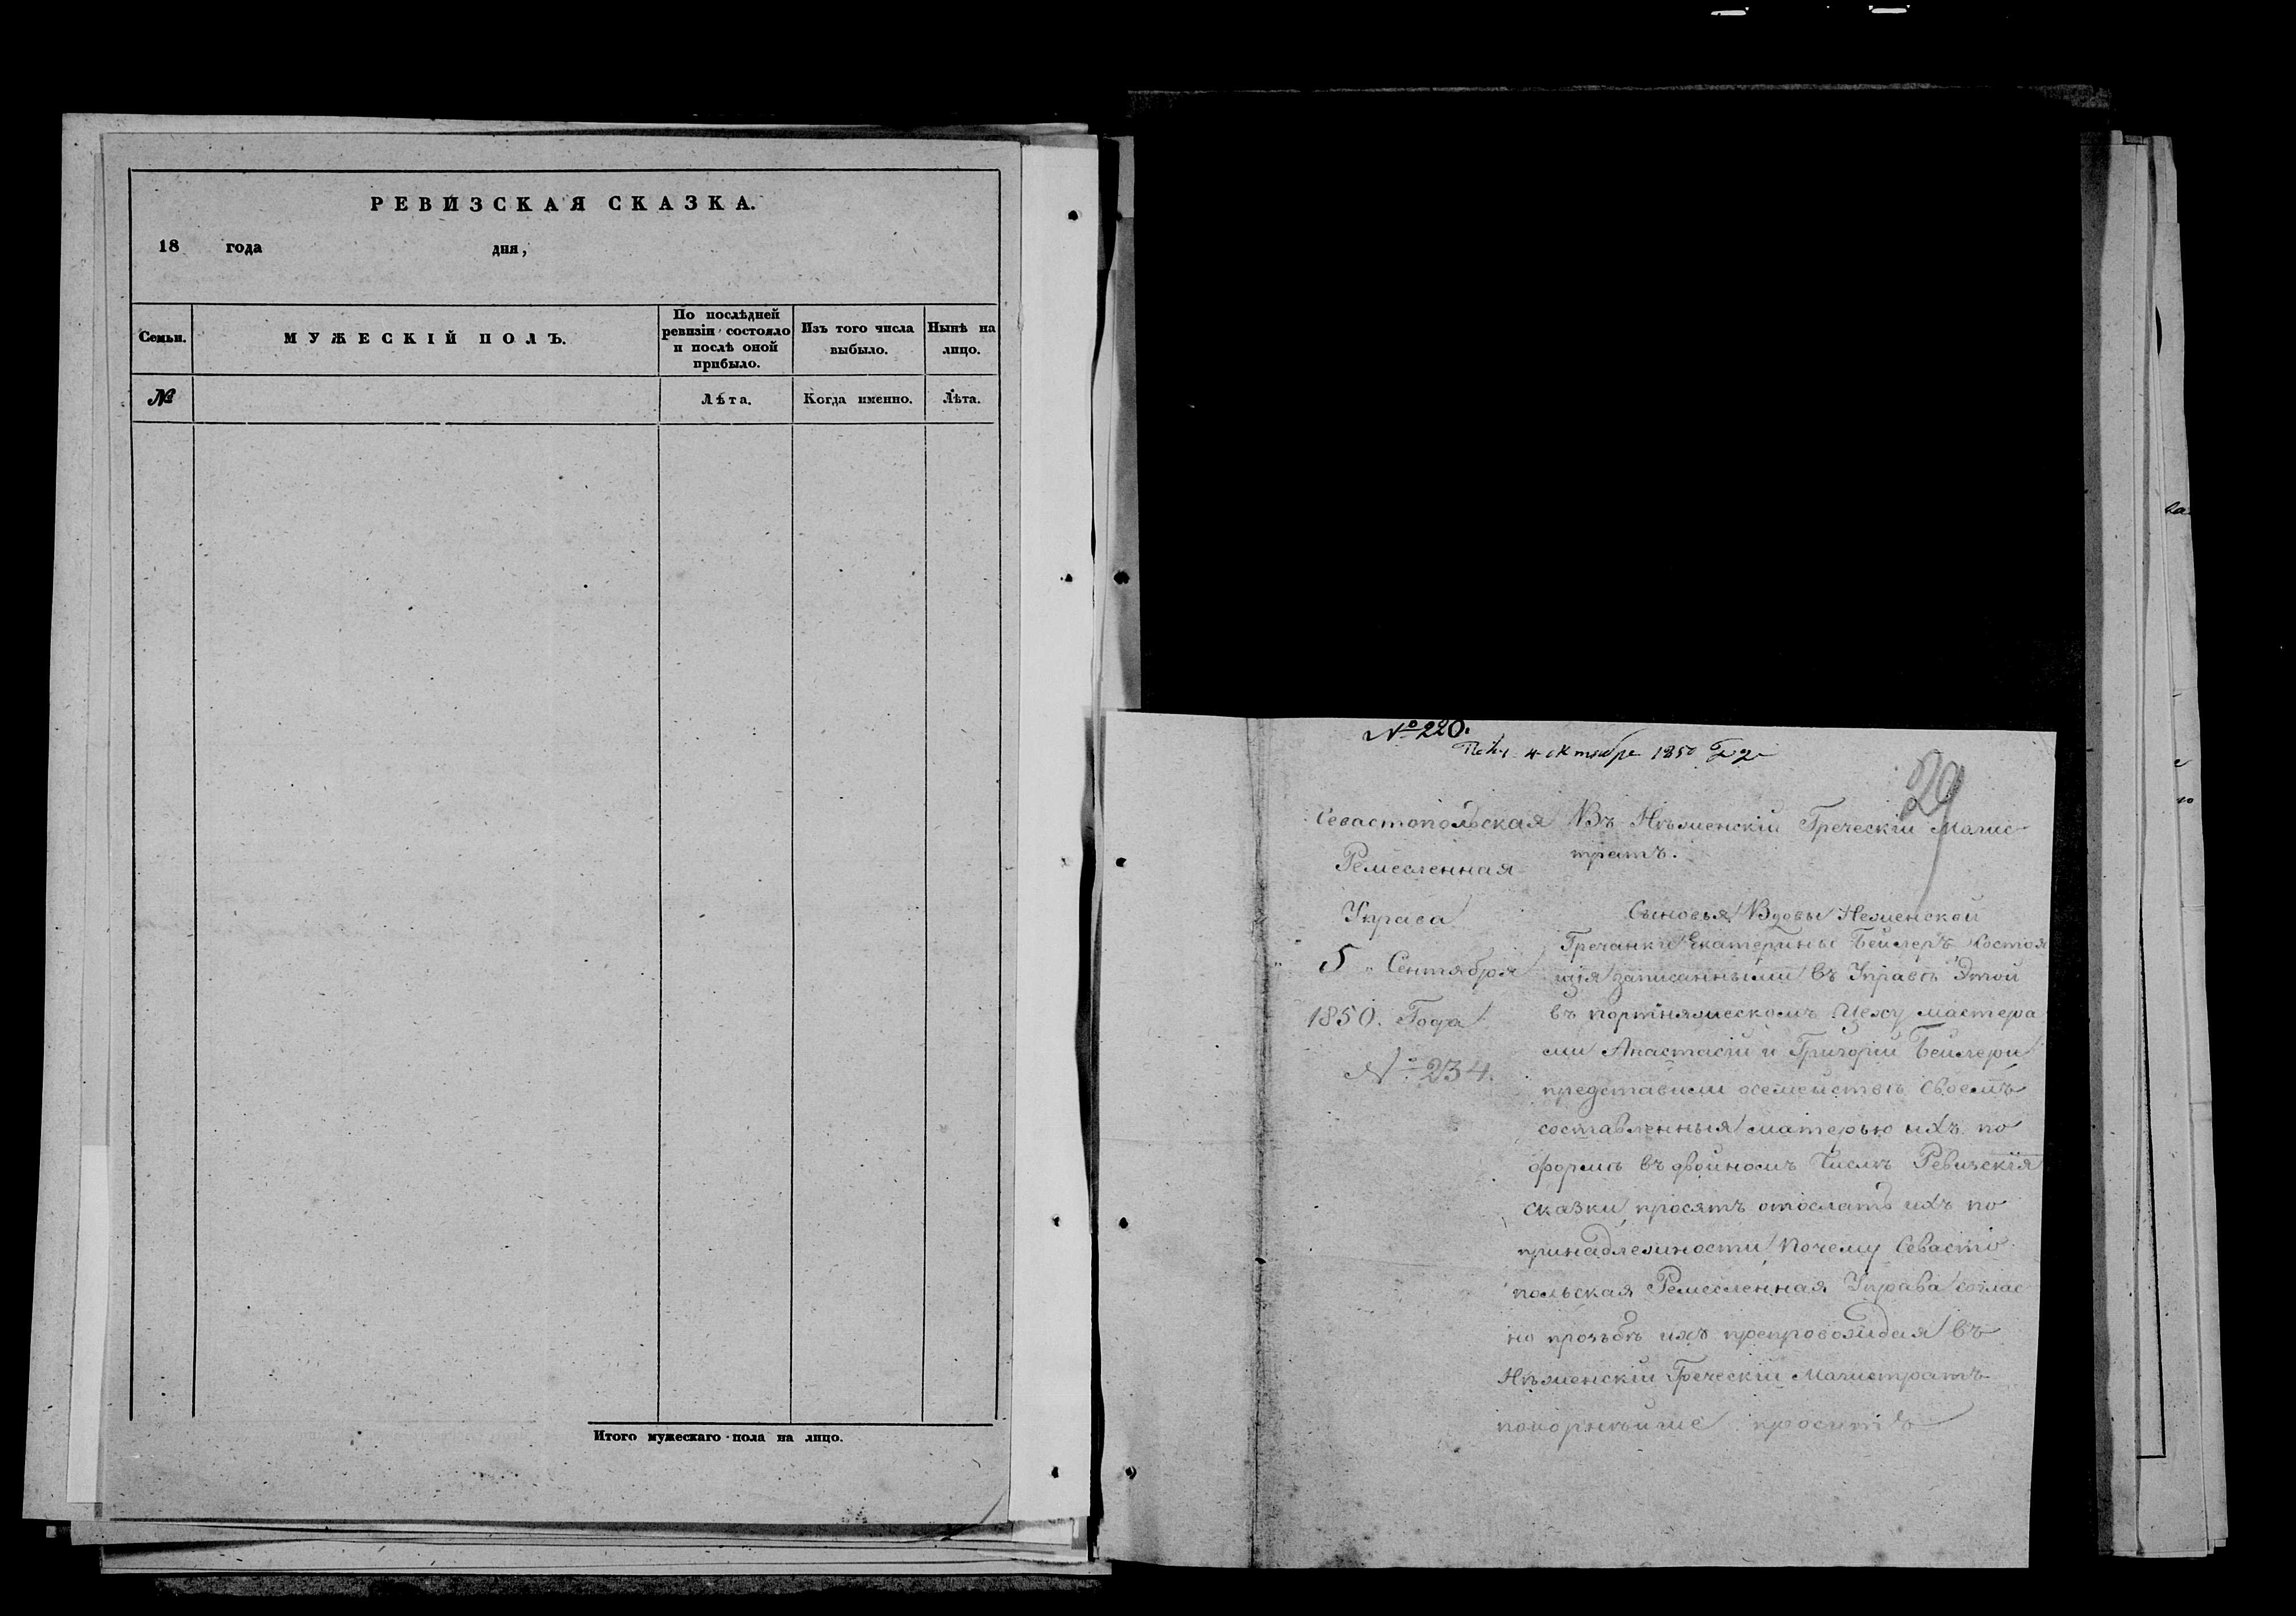 РЕВИЗСКАЯ СКАЗКА.
18 года дня,
Семьи.
МУЖЕСКІЙ ПОЛЪ.
По послѣдней
ревизіи состояло
и послѣ оной
прибыло.
Изъ того числа
выбыло.
Нынѣ на
лицо.
№
Лѣта.
Когда именно.
Лѣта.
Итого мужескаго пола на лицо.
№ 220.
4 октября 1850
29
Севастопольская
Ремесленная
Управа
5 Сентября
1850. Года
№ 234.
Въ Нѣженскій Греческій Магис
тратъ.
Сыновья Вдовы Неженской
Гречанки Екатерины Бейлеръ Состоя
щія записанными въ Управѣ Этой
въ портняжескомъ Цеху мастера
ми Анастасій и Григорій Бейлери
представили осемействѣ своемъ
составленныя матерью ихъ по
формѣ въ двойномъ Числѣ Ревизскія
сказки, просятъ отослать ихъ по
принадлежности, Почему Севасто
польская Ремесленная Управа соглас
но прозьбѣ ихъ препровождая въ
Нѣженскій Греческій Магистратъ
покорнѣйше проситъ